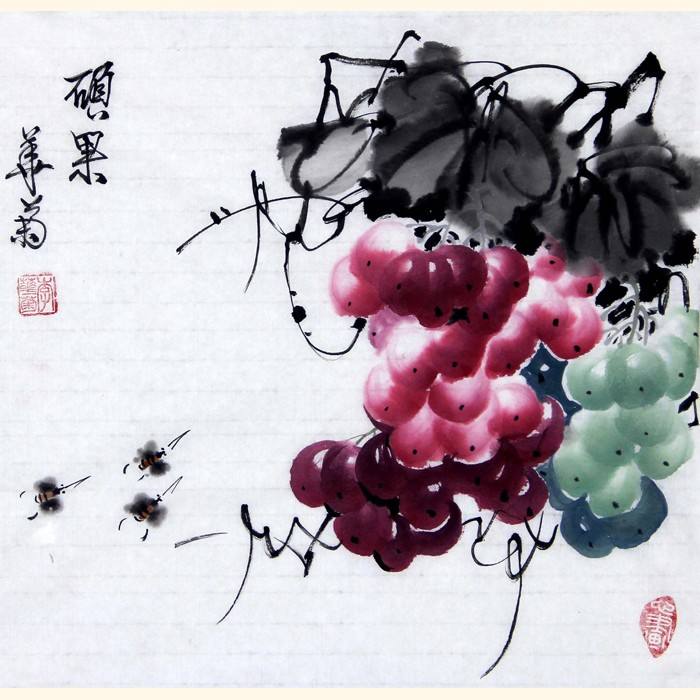 碩果
華菊